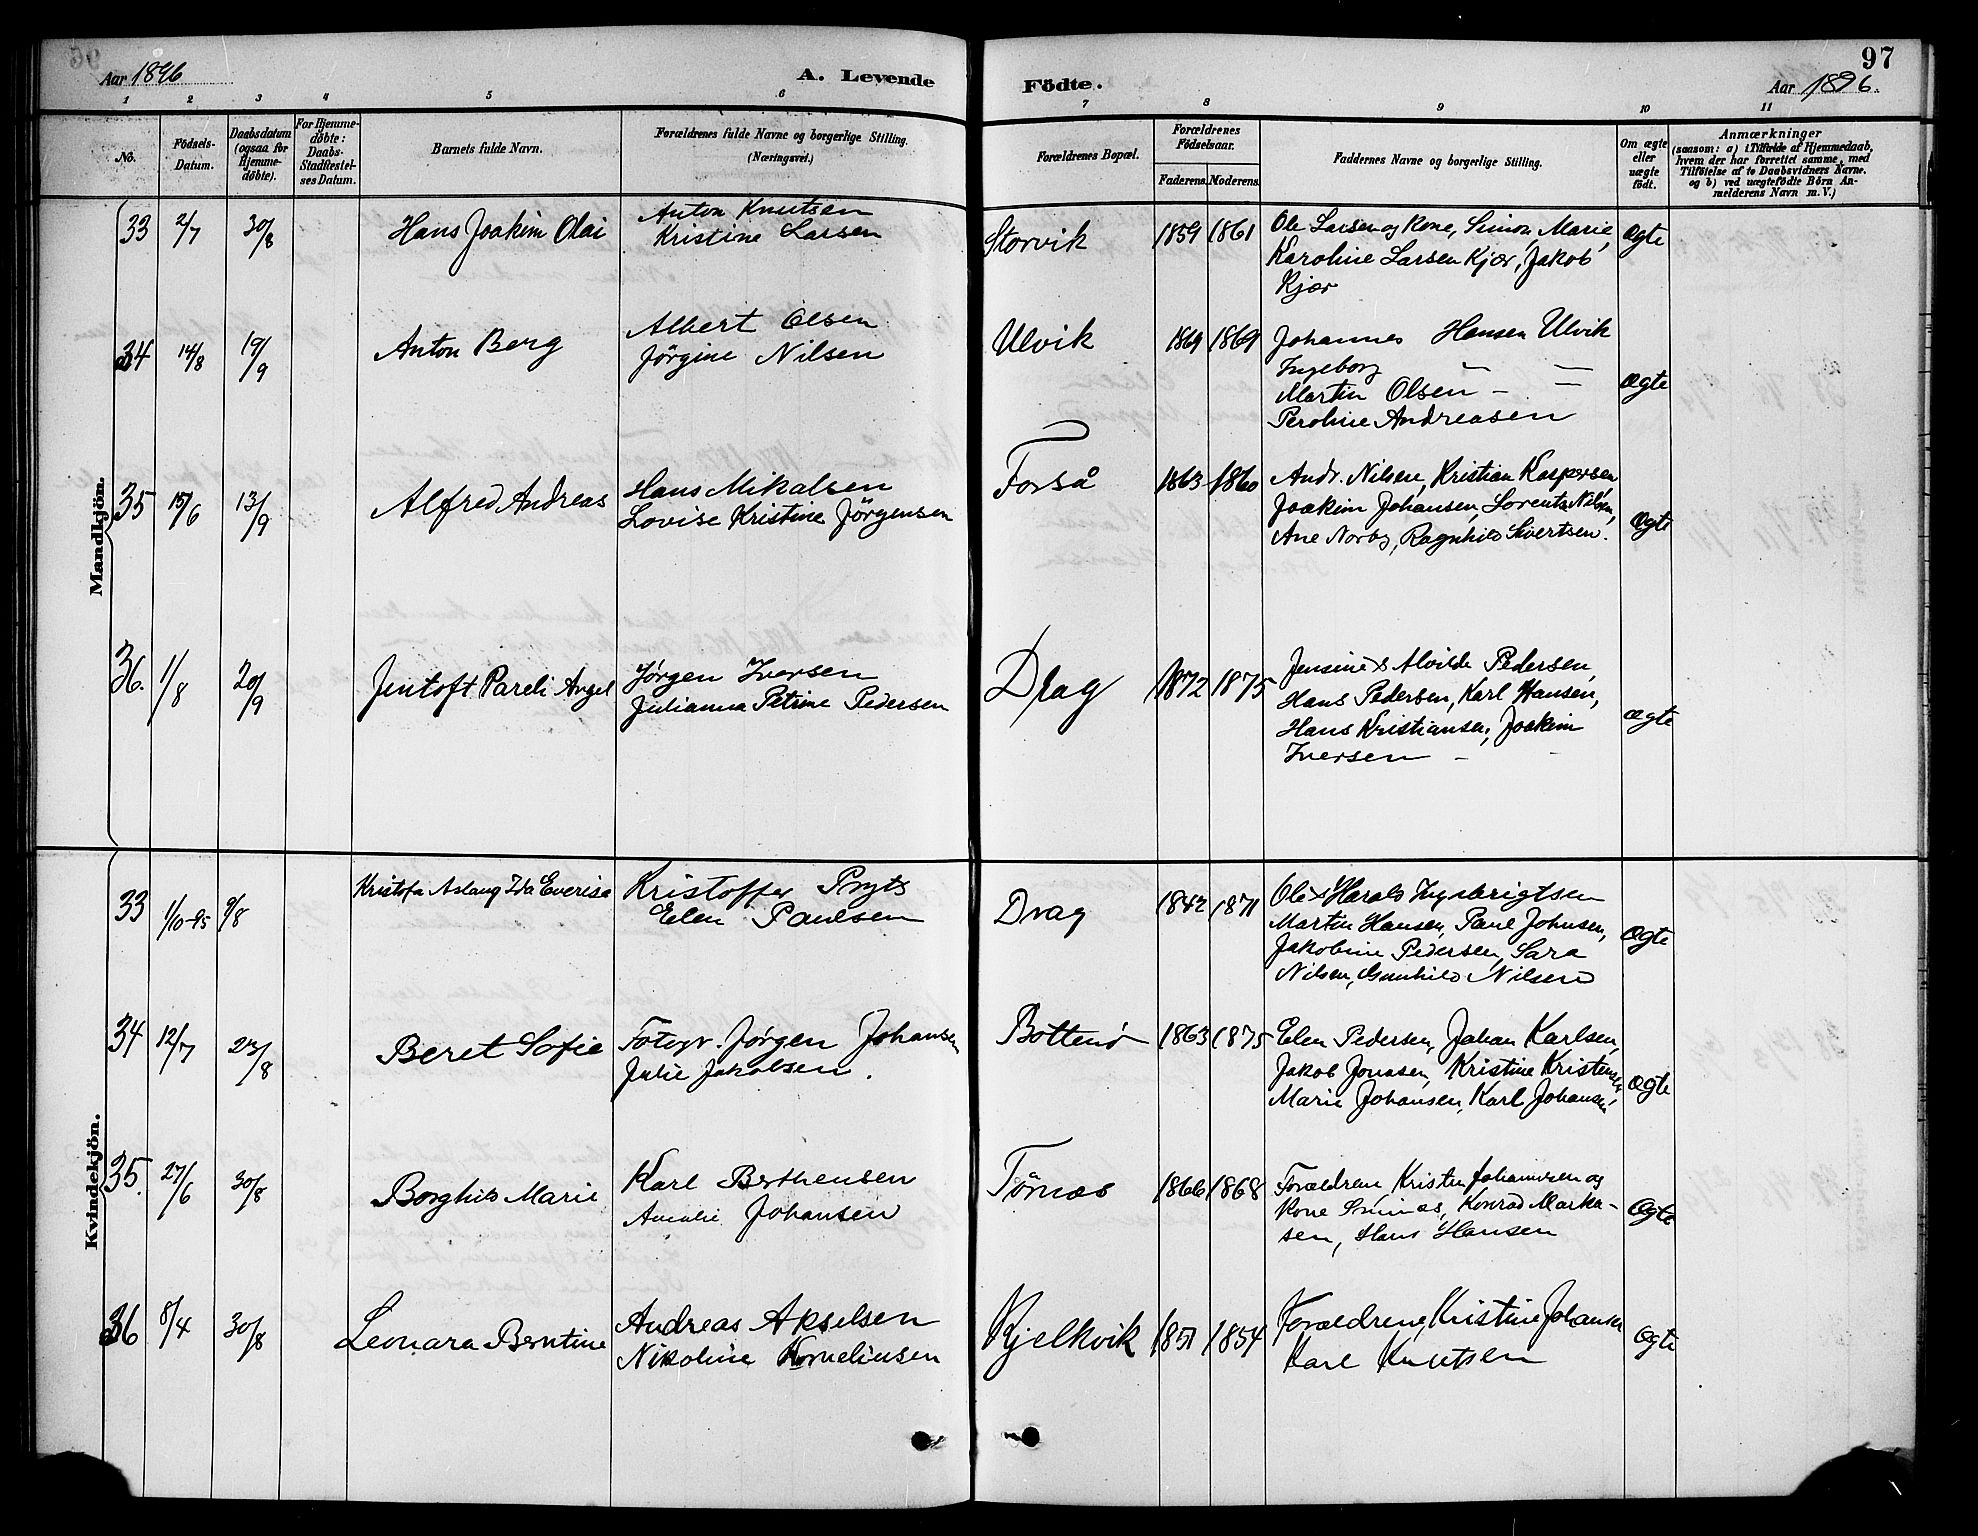 Aar 1896
A. Levende
Födte.
97
Aar 1896.
1 2 3 4 5 6 7 8 9 10 11
No.
Födsels-
Datum.
Daabsdatum
(ogsaa for
Hjemme-
döbte).
For Hjemme-
döbte:
Daabs-
Stadfestel-
ses Datum.
Barnets fulde Navn.
Forældrenes fulde Navne og borgerlige Stilling.
(Næringsvei.)
Forældrenes Bopæl.
Forældrenes
Födselsaar.
Faderens. Moderens.
Faddernes Navne og borgerlige Stilling.
Om ægte
eller
uægte
födt.
Anmærkninger
(saasom: a) i Tilfælde af Hjemmedaab,
hvem der har forrettet samme, med
Tilföielse af to Daabsvidners Navne,
og b) ved uægtefödte Börn An-
melderens Navn m. V.)
Mandkjön.
33 2/7 30/8 Hans Joakim Olai
Anton Knutsen
Kristine Larsen
Storvik 1859 1861
Ole Larsen og Kone, Simon, Marie,
Karoline Larsen Kjær, Jakob
Kjær
Ægte
34 14/8 19/9 Anton Berg
Albert Olsen
Jörgine Nilsen
Ulvik 1869 1869
Johannes Hansen Ulvik
Ingeborg — —
Martin Olsen — —
Peroline Andreasen
Ægte
35 15/6 13/9 Alfred Andreas
Hans Mikalsen
Lovise Kristine Jörgensen
Forså 1863 1860
Andr. Nilsen, Kristian Kaspersen,
Joakim Johansen, Lorents Nilsen,
Ane Norby, Ragnhild Sivertsen.
Ægte
36. 1/8 20/9 Jentoft Pareli Angel
Jørgen Iversen
Julianna Petrine Pedersen
Drag 1872 1875
Jensine & Alvilde Pedersen,
Hans Pedersen, Karl Hansen,
Hans Kristiansen, Joakim
Iversen —
Ægte
Kvindekjön.
33 1/10-95 9/8 Kristofa Aslaug Ida Everisa
Kristoffer Pryts
Elen Paulsen
Drag 1842 1871
Ole & Harald Ingebrigtsen
Martin Hansen, Paul Johnsen,
Jakobine Pedersen, Sara
Nilsen, Gunhild Nilsen
Ægte
34 12/7 23/8 Beret Sofie
Fotogr. Jørgen Johansen
Julie Jakobsen.
Bottenö 1863 1875
Elen Pedersen, Johan Karlsen,
Jakob Jonasen, Kristine Kristensen,
Marie Johansen, Karl Johansen,
Ægte
35. 27/6 30/8 Borghild Marie
Karl Berthensen
Amalie Johansen
Tårnæs 1866 1868
Forældrene Kristen Johannesen og
Kone, Konrad Marka-
sen, Hans Hansen
Ægte
36 8/4 30/8 Leonara Berntine
Andreas Akselsen
Nikoline Korneliusen
Kjelkvik 1851 1854
Forældrene, Kristine Johansen
Karl Knutsen
Ægte